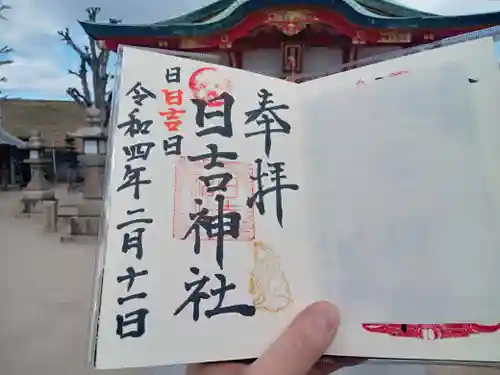 奉拝
日吉神社
日日吉日
令和四年二月十一日